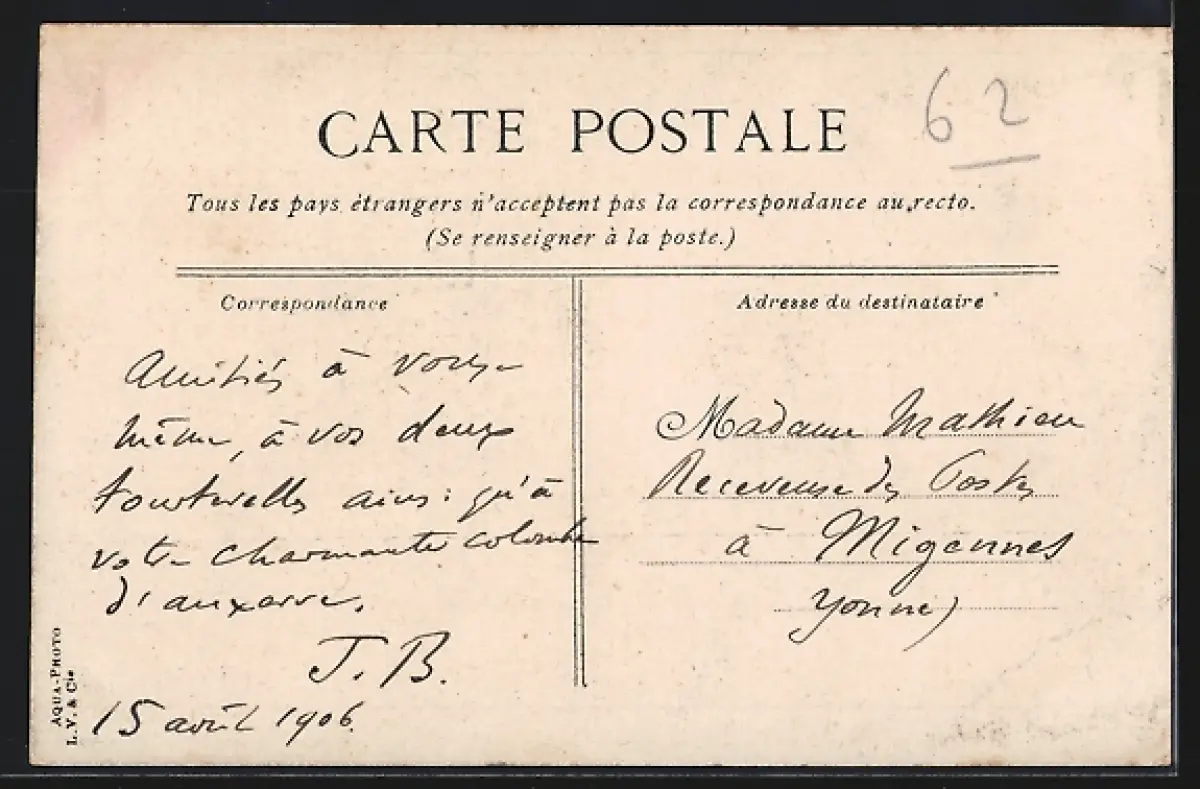 62
CARTE POSTALE
Tous les pays étrangers n'acceptent pas la correspondance au recto.
(Se renseigner à la poste.)
Correspondance
Amitiés à vous-
même, à vos deux
tourterelles ainsi qu'à
votre charmante colombe
d'auxerre.
J. B.
15 août 1906.
AQUA-PHOTO
L. V. & Cie
Adresse du destinataire
Madame Mathieu
Receveuse des Postes
à Migennes
Yonne)